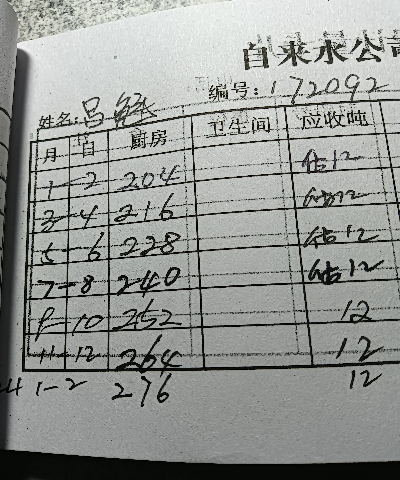 自来水公
姓名:吕 编号:172092
月 日 厨房 卫生间 应收吨
1-2 204 估12
3-4 216 估12
5-6 228 估12
7-8 240 估12
9-10 252 12
11-12 264 12
1-2 276 12